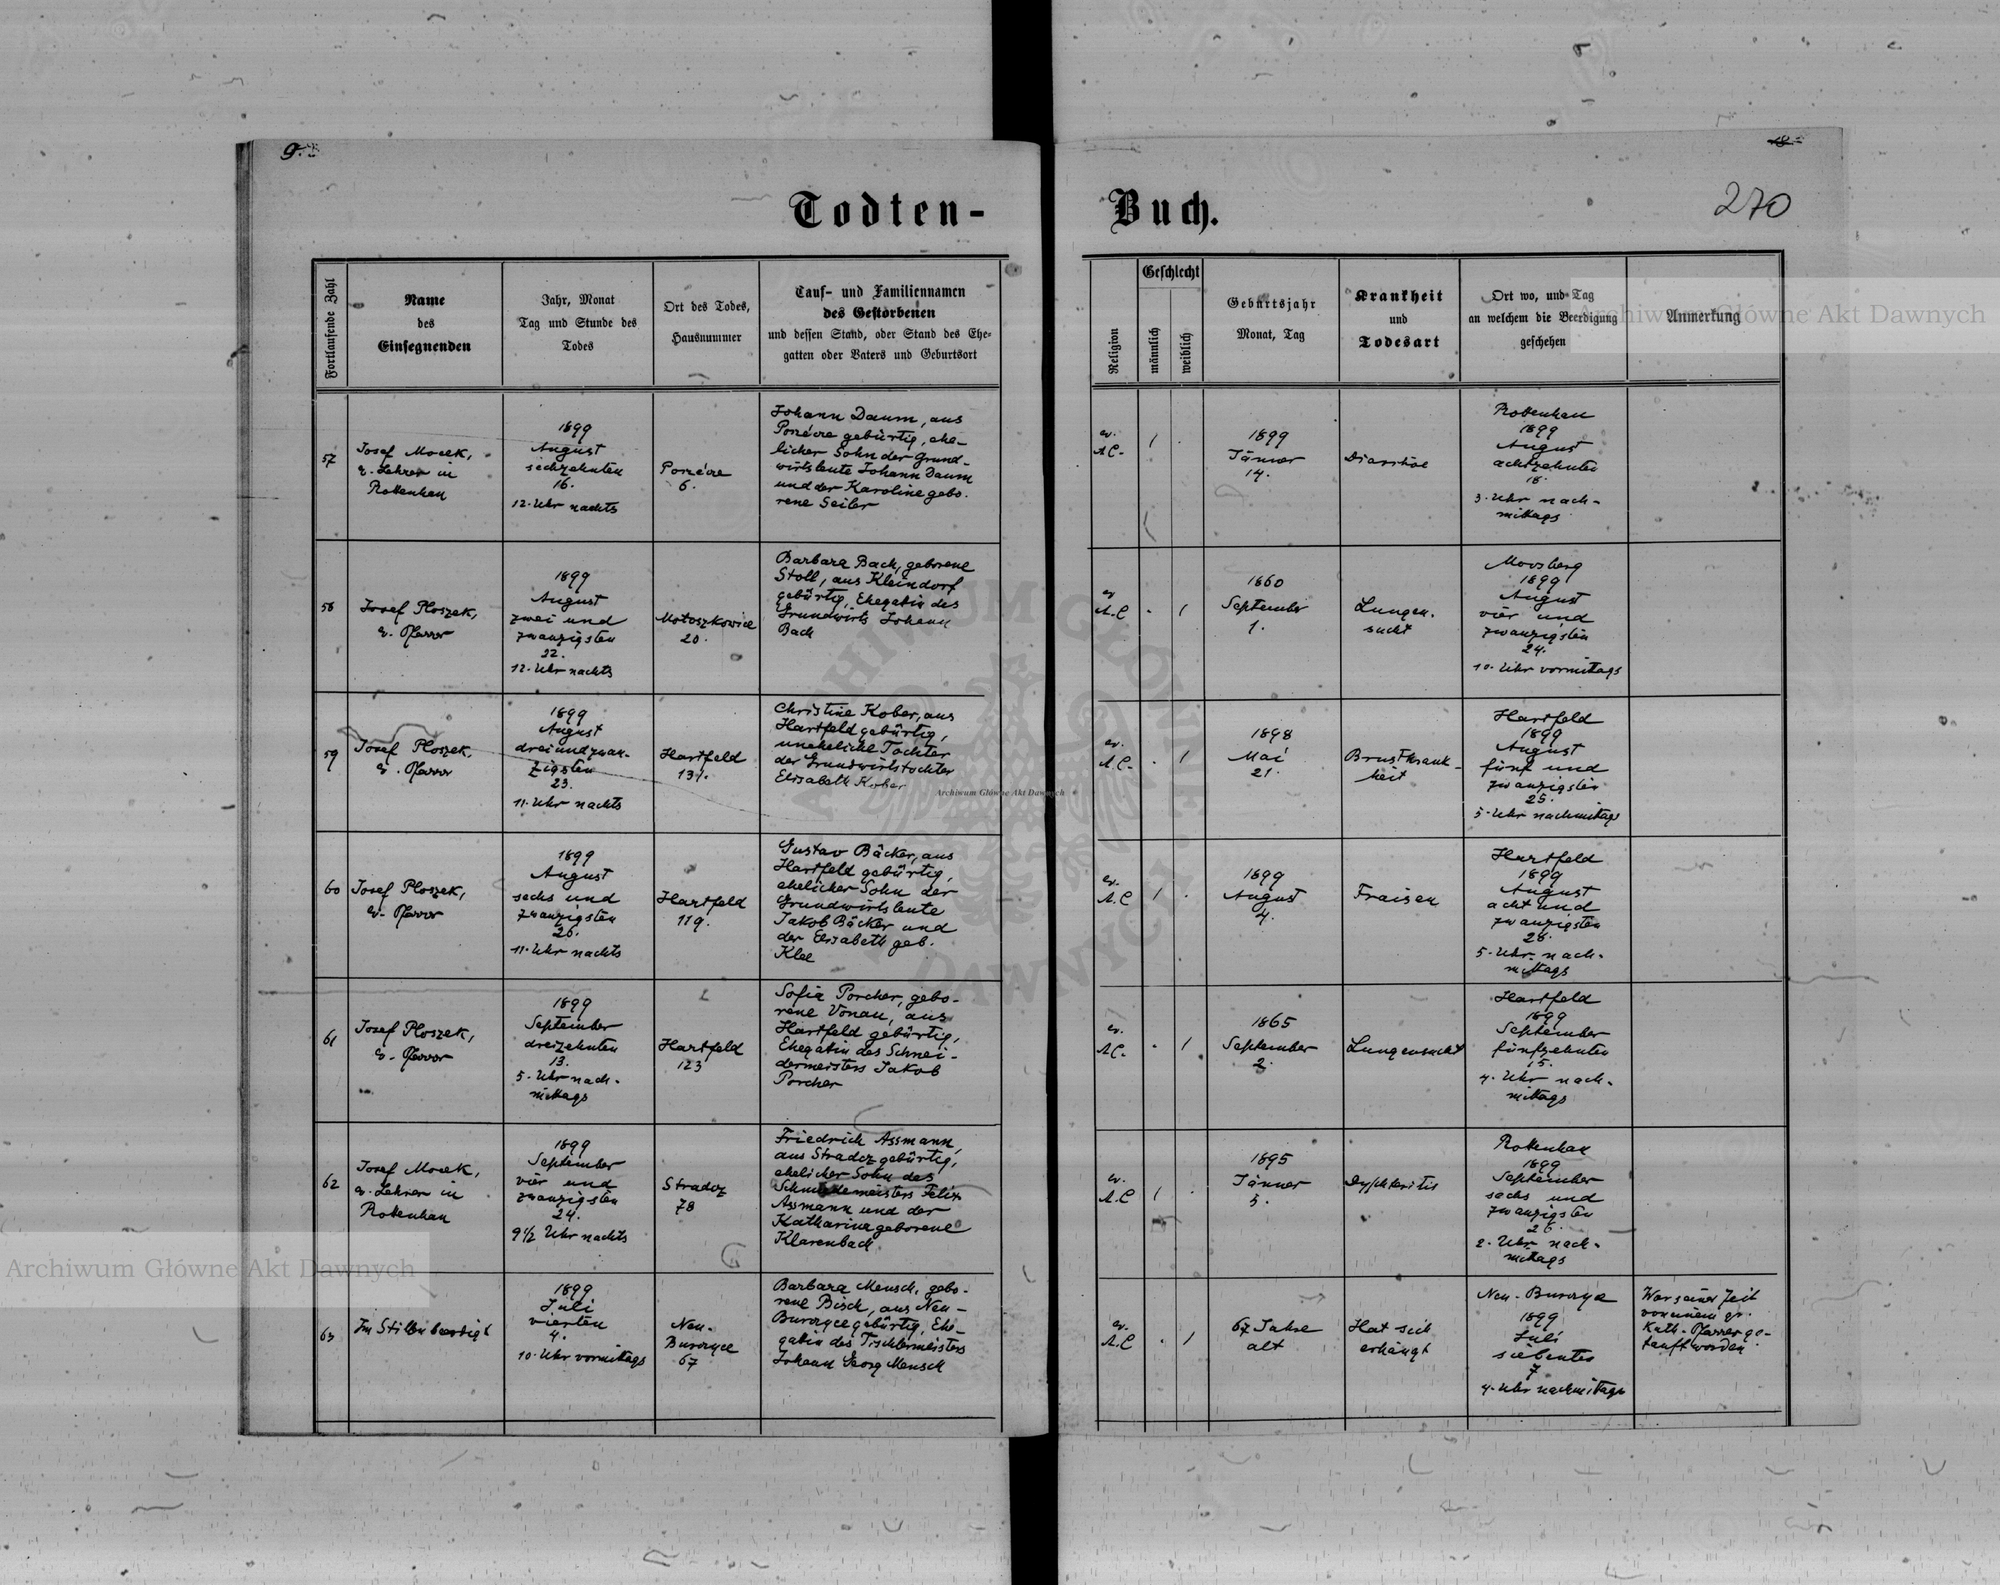 9.
Todten-
Fortlaufende Zahl
Name
des
Einsegnenden
Jahr, Monat
Tag und Stunde des
Todes
Ort des Todes,
Hausnummer
Tauf- und Familiennamen
des Gestorbenen
und dessen Stand, oder Stand des Ehe-
gatten oder Vaters und Geburtsort
57
Josef Mocek,
ev. Lehrer in
Rottenhan
1899
August
sechzehnten
16.
12. Uhr nachts
Porzécze
6.
Johann Daum, aus
Porzécze gebürtig, ehe-
licher Sohn der Grund-
wirtsleute Johann Daum
und der Karoline gebo-
rene Seiler
58
Josef Ploszek,
ev. Pfarrer
1899
August
zwei und
zwanzigsten
22.
12. Uhr nachts
Małoszkowice
20.
Barbara Bach, geborene
Stoll, aus Kleindorf
gebürtig, Ehegatin des
Grundwirts Johann
Bach
59
Josef Ploszek,
ev. Pfarrer
1899
August
dreiundzwan-
zigsten
23.
11. Uhr nachts
Hartfeld
131.
Christine Kober, aus
Hartfeld gebürtig,
uneheliche Tochter
der Grundwirtstochter
Elisabeth Kober
60
Josef Ploszek,
ev. Pfarrer
1899
August
sechs und
zwanzigsten
26.
11. Uhr nachts
Hartfeld
119.
Gustav Bäcker, aus
Hartfeld gebürtig,
ehelicher Sohn der
Grundwirtsleute
Jakob Bäcker und
der Elisabeth geb.
Klee
61
Josef Ploszek,
ev. Pfarrer
1899
September
dreizehnten
13.
5. Uhr nach-
mittags
Hartfeld
123
Sofia Porcher, gebo-
rene Vonau, aus
Hartfeld gebürtig,
Ehegatin des Schnei-
dermeisters Jakob
Porcher
62
Josef Mocek,
ev. Lehrer in
Rottenhan
1899
September
vier und
zwanzigsten
24.
9 1/2 Uhr nachts
Stradcz
78
Friedrich Assmann,
aus Stradcz gebürtig,
ehelicher Sohn des
Schmidemeisters Felix
Assmann und der
Katharina geborene
Klarenbach
63
Im Stillen beerdigt
1899
Juli
vierten
4.
10. Uhr vormittags
Neu-
Burczyce
67
Barbara Mensch, gebo-
rene Bisch, aus Neu-
Burczyce gebürtig, Ehe-
gatin des Tischlermeisters
Johann Georg Mensch
Buch.
270
Religion
Geschlecht
männlich
weiblich
Geburtsjahr
Monat, Tag
Krankheit
und
Todesart
Ort wo, und Tag
an welchem die Beerdigung
geschehen
Anmerkung
ev.
A.C.
1
1899
Jänner
14.
Diarrhöe
Rottenhan
1899
August
achtzehnten
18.
3. Uhr nach-
mittags
ev.
A.C.
1
1860
September
1.
Lungen-
sucht
Moosberg
1899
August
vier und
zwanzigsten
24.
10. Uhr vormittags
ev.
A.C.
1
1898
Mai
21.
Brustkrank-
heit
Hartfeld
1899
August
fünf und
zwanzigsten
25.
5. Uhr nachmittags
ev.
A.C.
1
1899
August
4.
Fraisen
Hartfeld
1899
August
acht und
zwanzigsten
28.
5. Uhr nach-
mittags
ev.
A.C.
1
1865
September
2.
Lungensucht
Hartfeld
1899
September
fünfzehnten
15.
4. Uhr nach-
mittags
ev.
A.C.
1
1895
Jänner
5.
Dyphteritis
Rottenhan
1899
September
sechs und
zwanzigsten
26.
2. Uhr nach-
mittags
ev.
A.C.
1
67 Jahre
alt
Hat sich
erhängt
Neu-Burczyce
1899
Juli
siebenten
7
4. Uhr nachmittags
War seiner Zeit
von einem gr.
Kath. Pfarrer ge-
tauft worden.
Archiwum Główne Akt Dawnych
Archiwum Główne Akt Dawnych
Archiwum Główne Akt Dawnych
ARCHIWUM GŁÓWNE AKT DAWNYCH